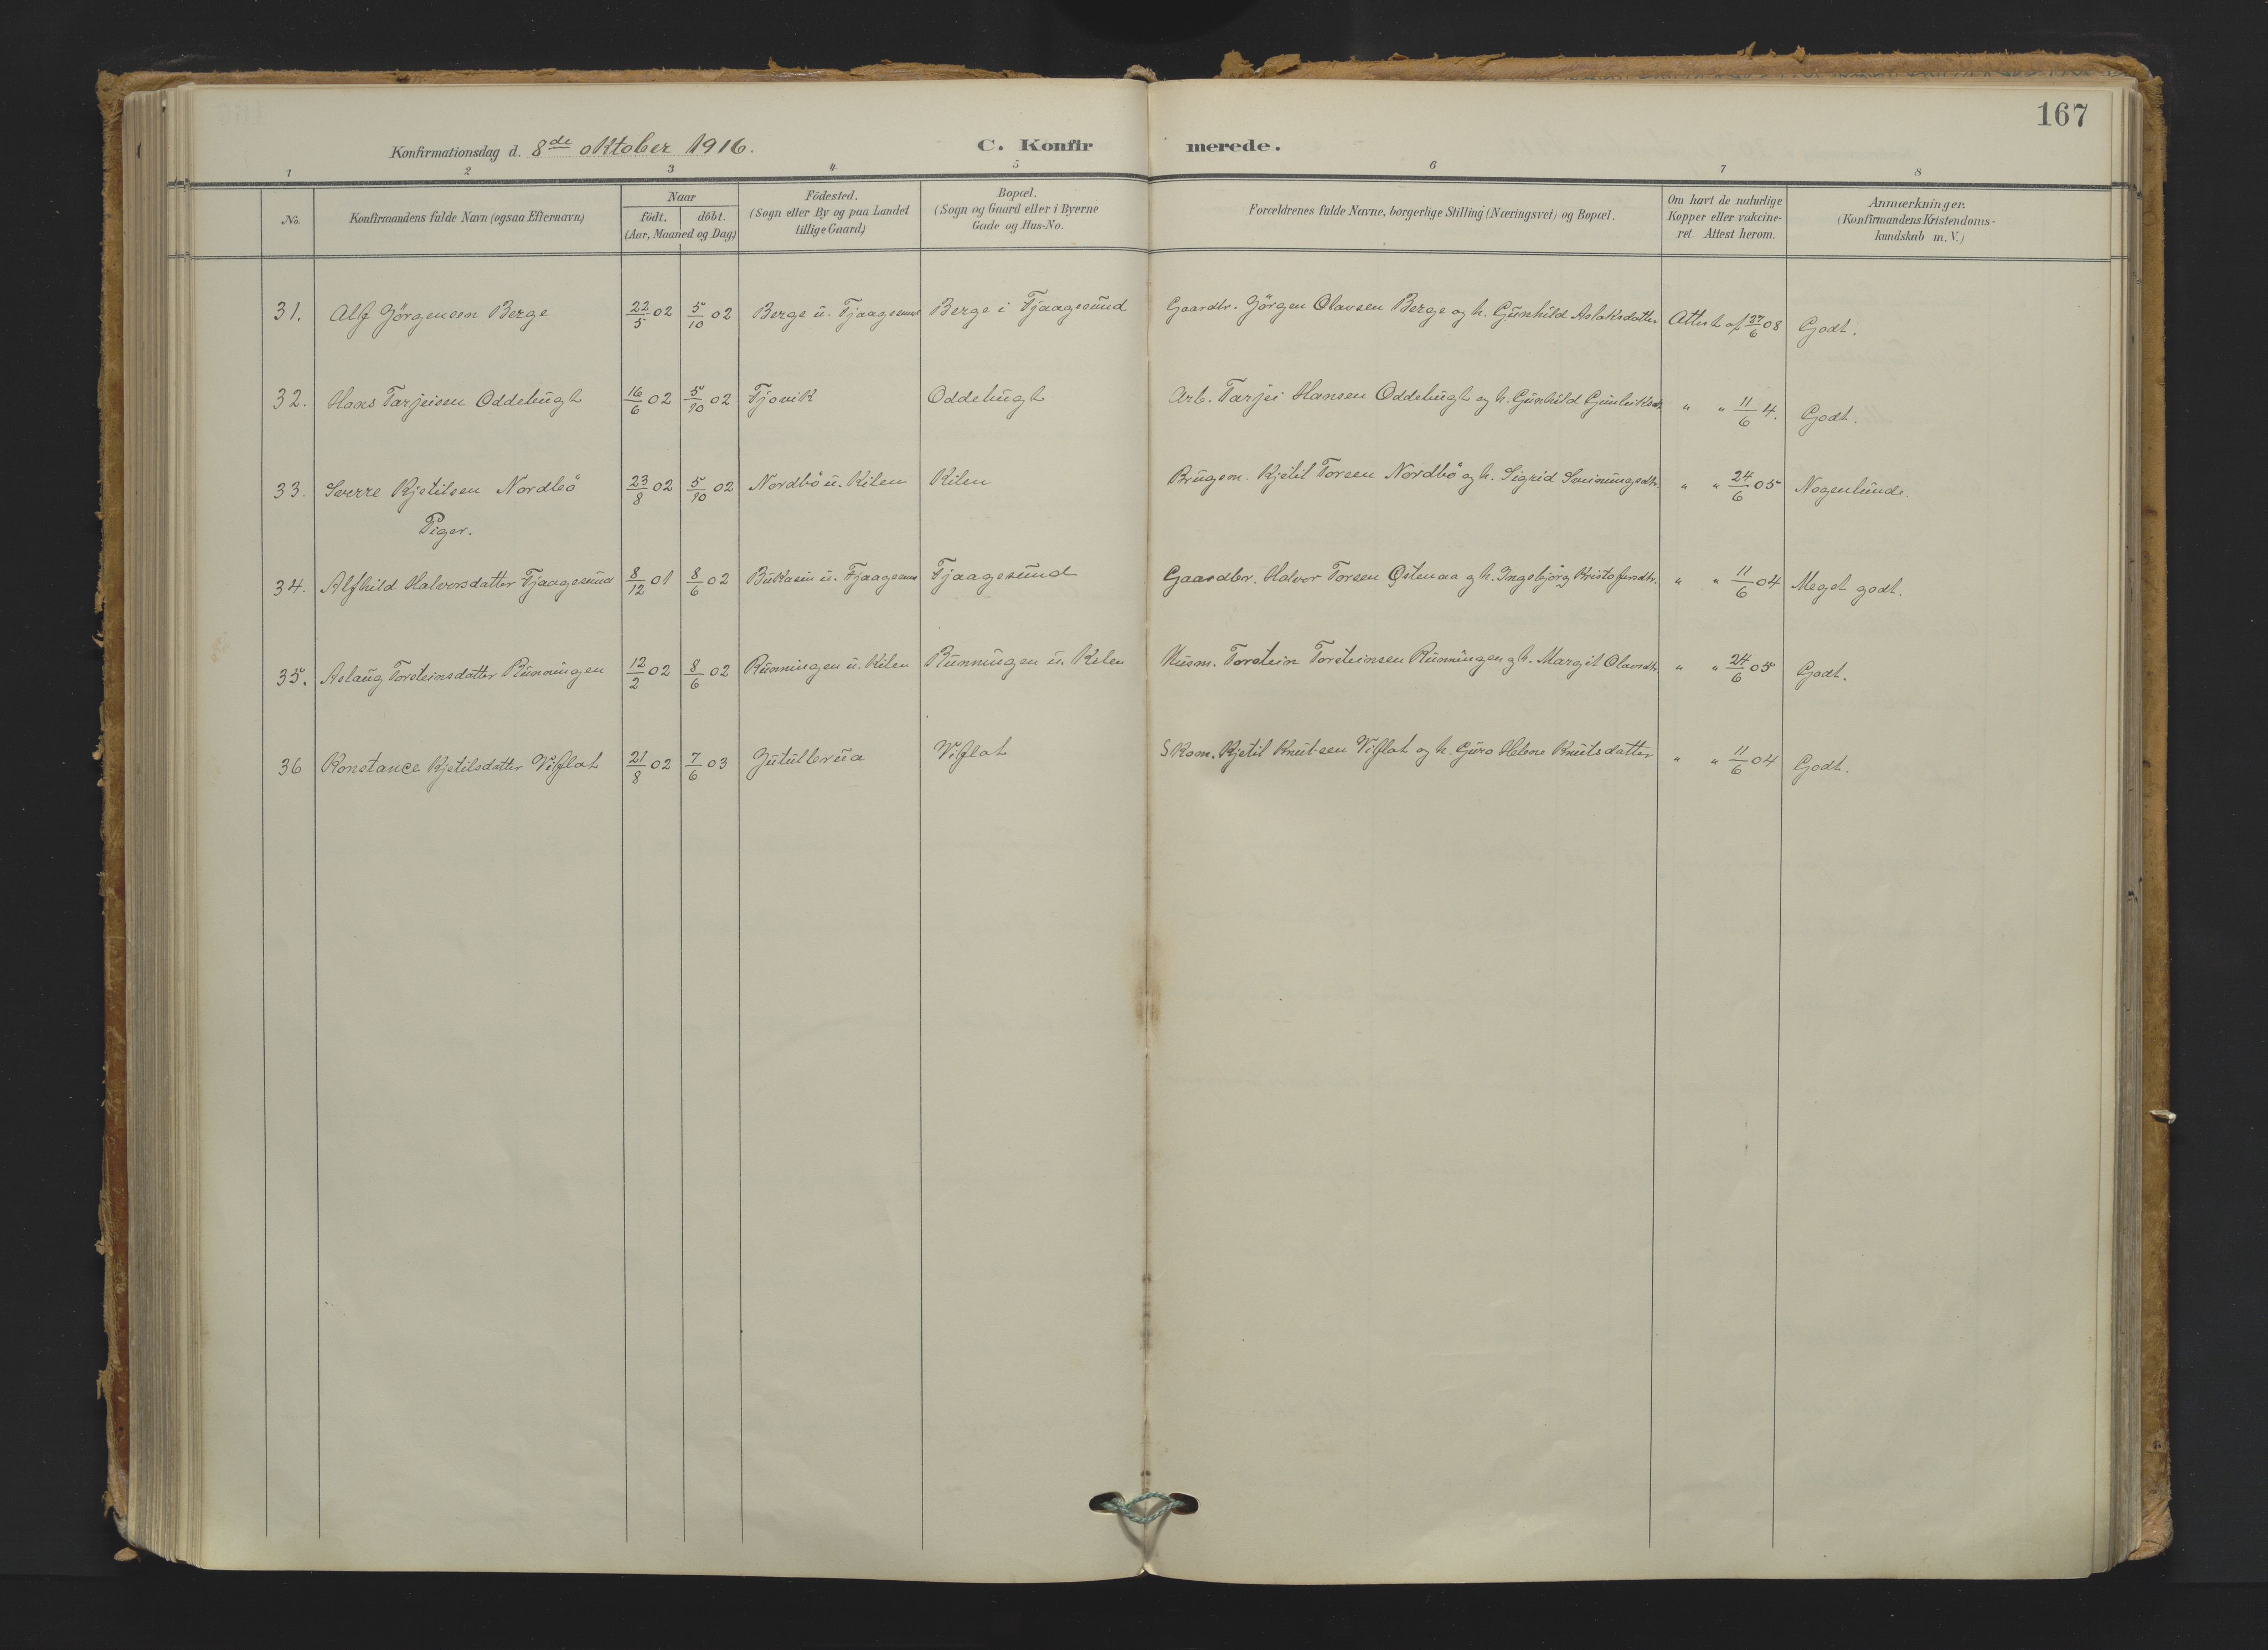 167
Konfirmationsdag d. 8de oktober 1916.
C. Konfirmerede.
1 2 3 4 5 6 7 8
No.
Konfirmandens fulde Navn (ogsaa Efternavn)
Naar
födt. döbt.
(Aar, Maaned og Dag)
Födested.
(Sogn eller By og paa Landet
tillige Gaard)
Bopæl.
(Sogn og Gaard eller i Byerne
Gade og Hus-No.
Forældrenes fulde Navne, borgerlige Stilling (Næringsvei) og Bopæl.
Om havt de naturlige
Kopper eller vakcine-
ret. Attest herom.
Anmærkninger.
(Konfirmandens Kristendoms-
kundskab m. V.)
31. Alf Jörgensen Berge 22/5 02 5/10 02 Berge u. Fjaagesund Berge i Fjaagesund Gaardbr. Jörgen Olavsen Berge og h. Gunhild Aslaksdatter Attest af 27/6 08 Godt.
32. Hans Tarjeisen Oddebugt 16/6 02 5/10 02 Fjovik Oddebugt Arb. Tarjei Hansen Oddebugt og h. Gunhild Gunleiksdt. " " 11/6 4. Godt.
33. Sverre Kjetilsen Nordbö 23/8 02 5/10 02 Nordbö u. Kilen Kilen Brugsm. Kjetil Torsen Nordbö og h. Sigrid Sveinungsdtr. " " 24/6 05 Nogenlunde.
Piger.
34. Alfhild Halvorsdatter Fjaagesund 8/12 01 8/6 02 Bukasin u. Fjaagesund Fjaagesund Gaardbr. Halvor Torsen Østenaa og h. Ingebjörg Kristofersdtr. " " 11/6 04 Meget godt.
35. Aslaug Torsteinsdatter Runningen 12/2 02 8/6 02 Runningen u. Kilen Runningen u. Kilen Husm. Torstein Torsteinsen Runningen og h. Margit Olavsdtr. " " 24/6 05 Godt.
36 Konstance Kjetilsdatter Viflat 21/8 02 7/6 03 Jutulbrua Viflat Skom. Kjetil Knutsen Viflat og h. Guro Helene Knutsdatter " " 11/6 04 Godt.